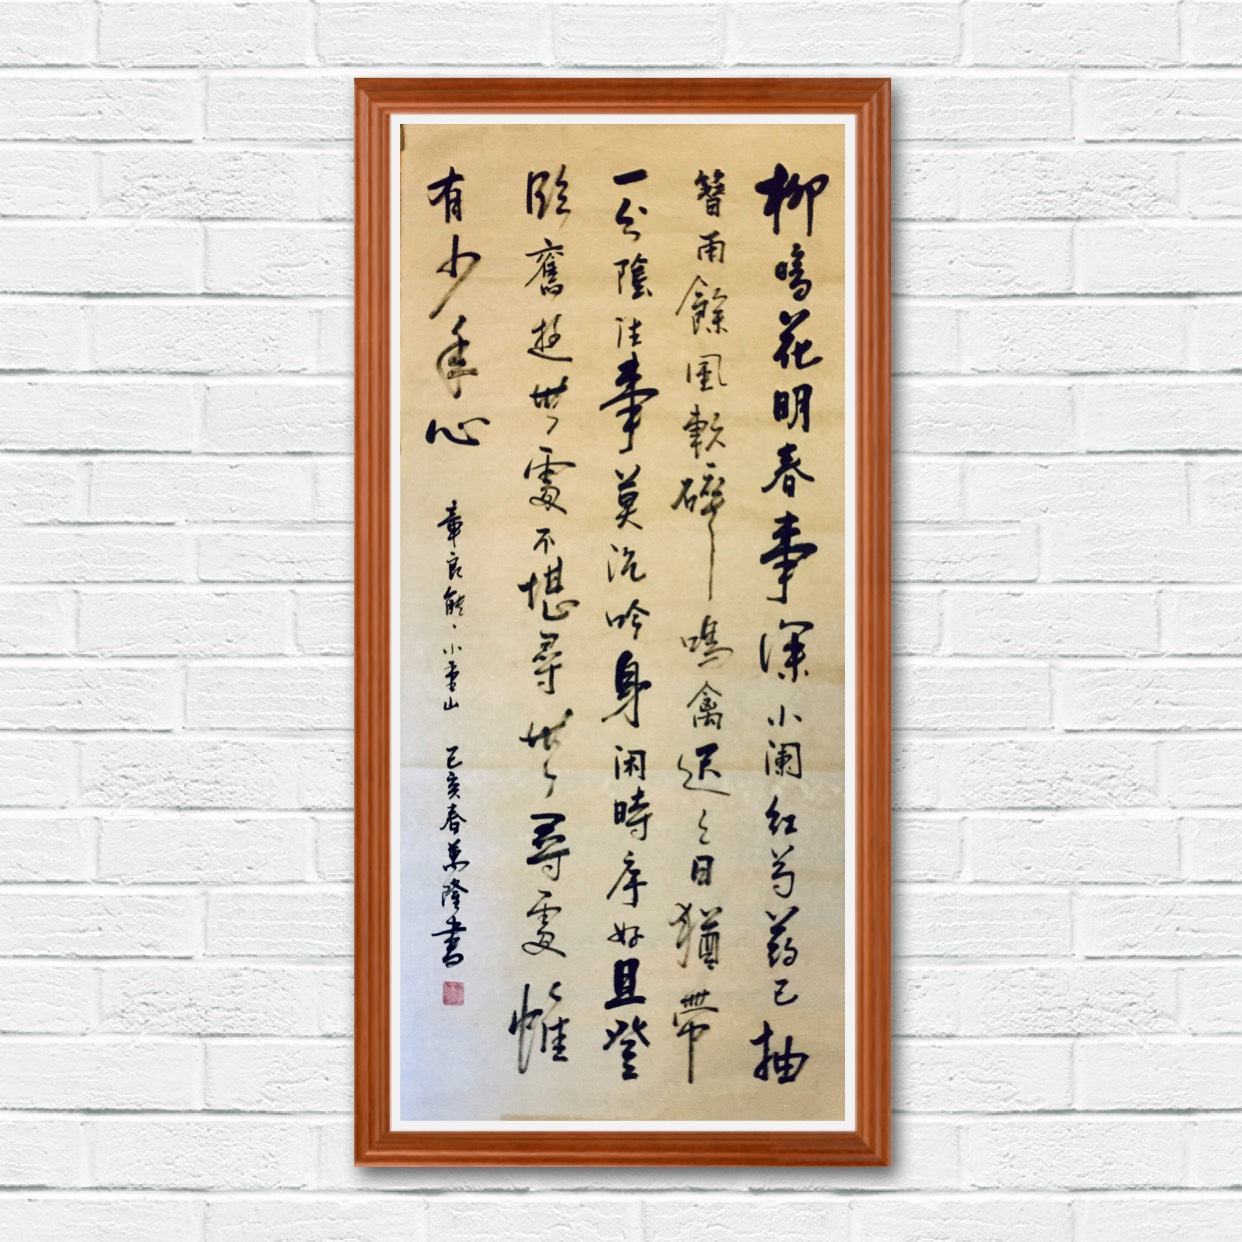 柳暗花明春事深小闌紅芍药已抽
簪雨餘風軟碎鳴禽迟々日猶帶
一分陰往事莫沉吟身闲時序好且登
臨舊遊無處不堪尋無尋處惟
有少年心
章良能、小重山 己亥春萬隆書